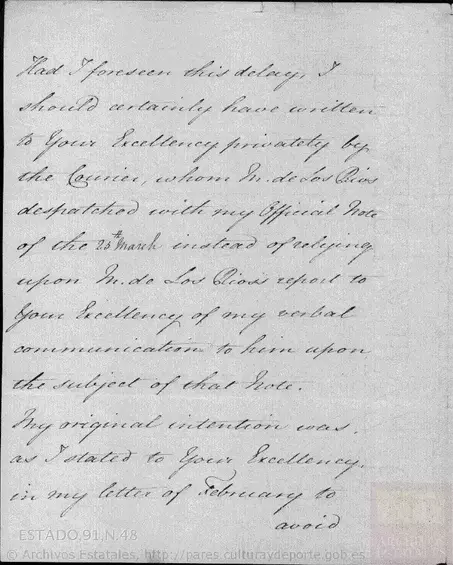 Had I foreseen this delay, I
should certainly have written
to Your Excellency privately by
the Courier, whom M. de Los Rios
despatched with my Official Note
of the 25th March instead of relying
upon M. de Los Rios's report to
Your Excellency of my verbal
communication to him upon
the subject of that Note.
My original intention was,
as I stated to Your Excellency,
in my letter of February to
avoid
ESTADO,91,N.48
© Archivos Estatales, http://pares.culturaydeporte.gob.es